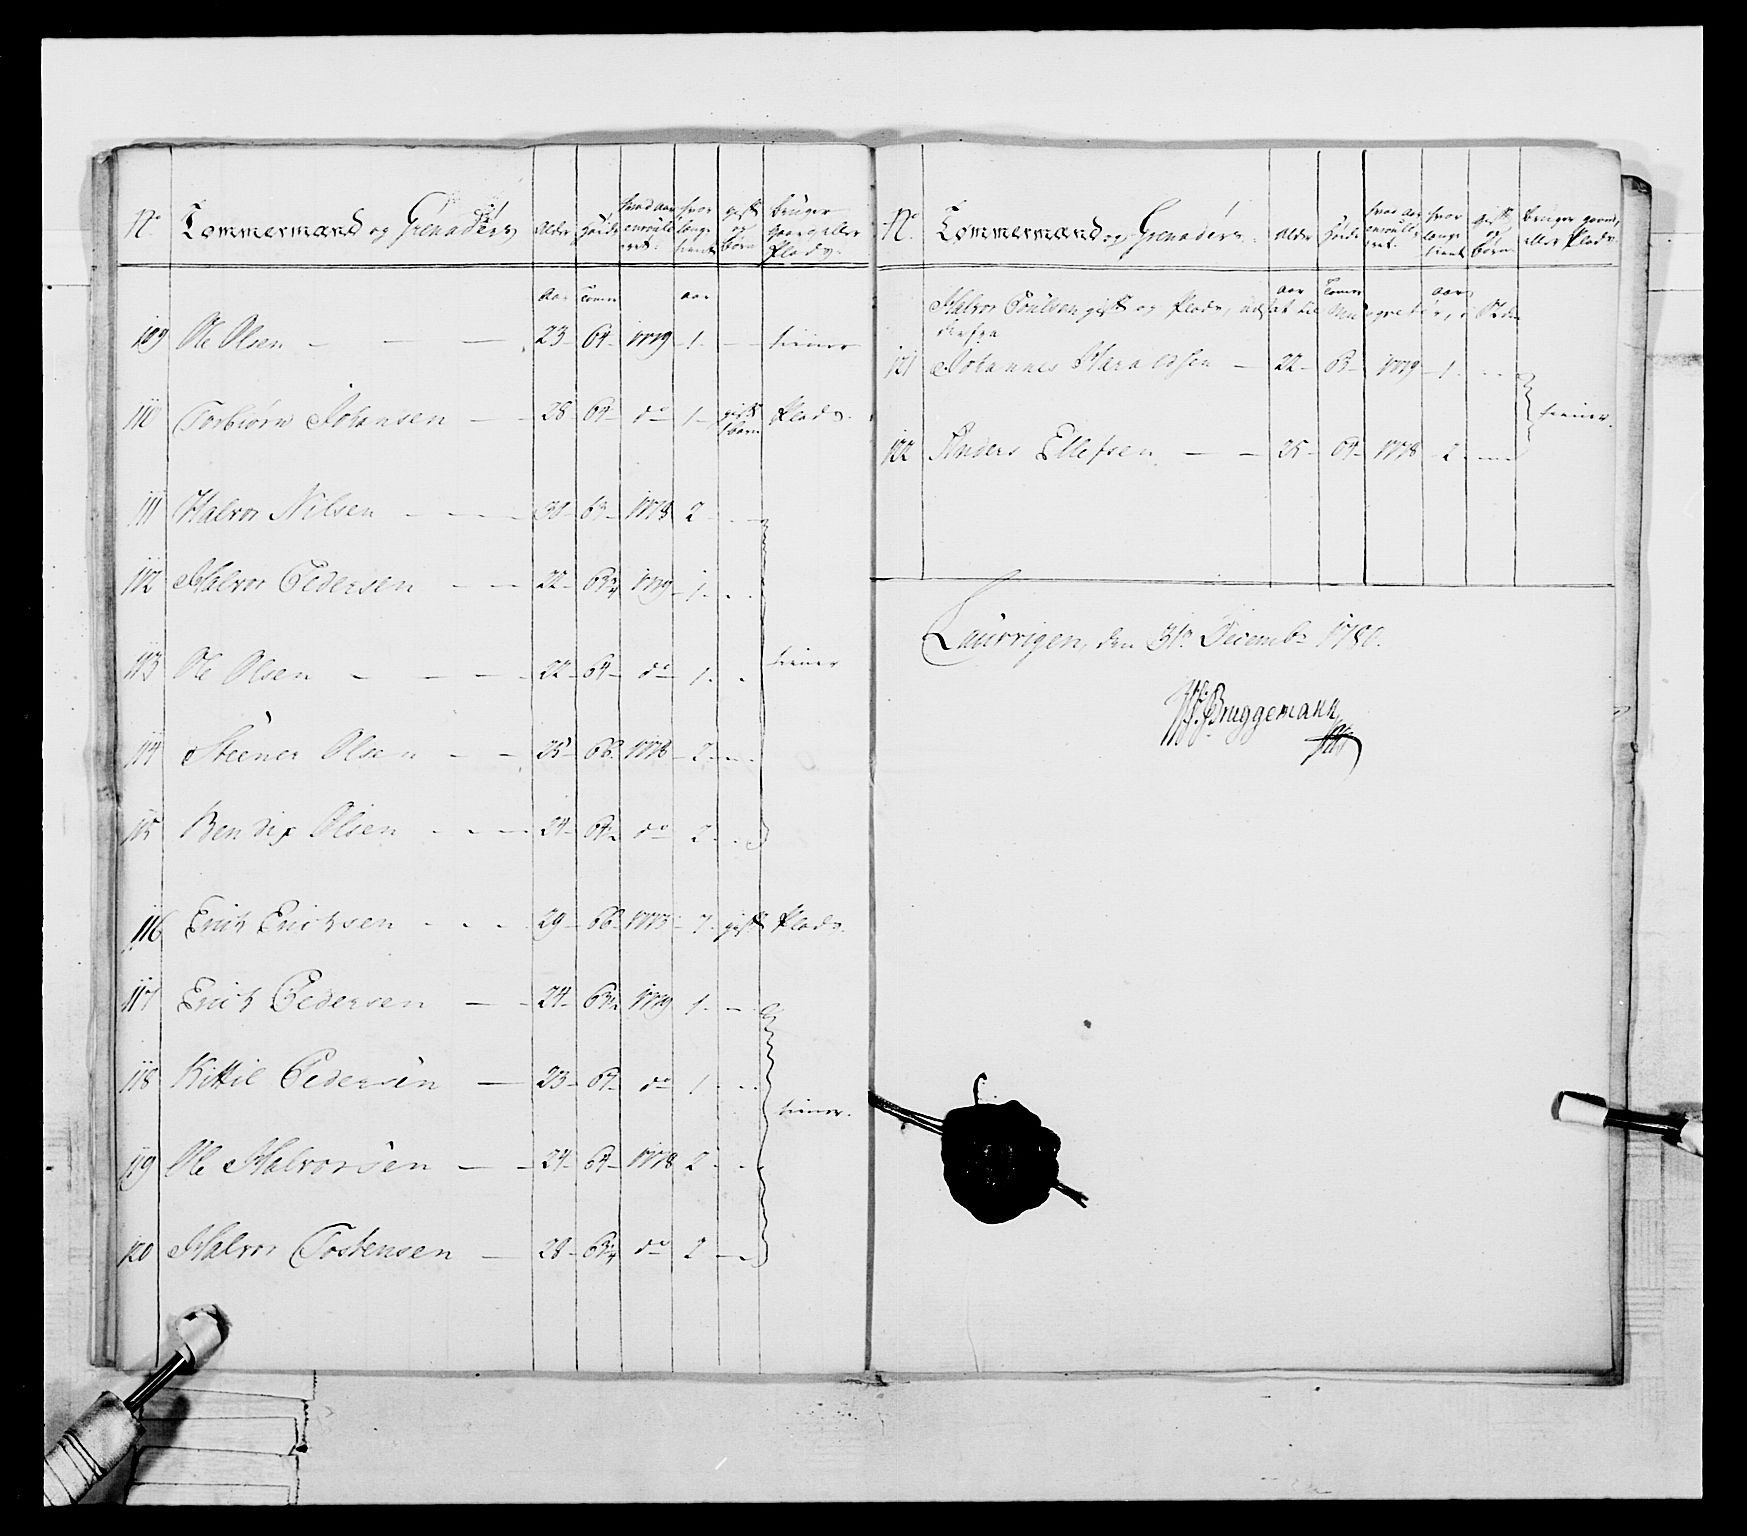 No. Tømmermænd og Grenaderer Alder Høide hvad aar enroulleret hvor længe tient gift og børn bruger gaard eller Plads
Aar Tomer aar
109 Ole Olsen — — — 23 64 1779 1 — tiener
110 Torbiørn Johansen — 28 64 do 1 gift 1 barn Plads
111 Halvor Nilsen — — 30 63 1778 2
112 Halvor Pedersen — — 22 63 1779 1
113 Ole Olsen — — — 22 64 do 1 tiener
114 Steener Olsen — — 25 66 1778 2
115 Bendix Olsen — — 24 64 do 2
116 Erich Erichsen 29 66 1773 7 gift Plads
117 Erich Pedersen — 24 63 1779 1
118 Kittil Pedersen — 23 64 do 1
tiener
119 Ole Halvorsen — 24 64 1778 2
120 Halvor Tostensen — 28 63 do 2
No. Tømmermænd og Grenaderer Alder Høide hvad aar enroulleret hvor længe tient gift og børn bruger gaard eller Plads
aar Tomer aar
Halvor Poulsen gift og Plads,
121 Johannes Haraldsen — 22 63 1779 1
tiener
122 Anders Ellefsen — — 25 64 1778 2
Laurvigen, den 31te Decembr 1780.
Bruggemann